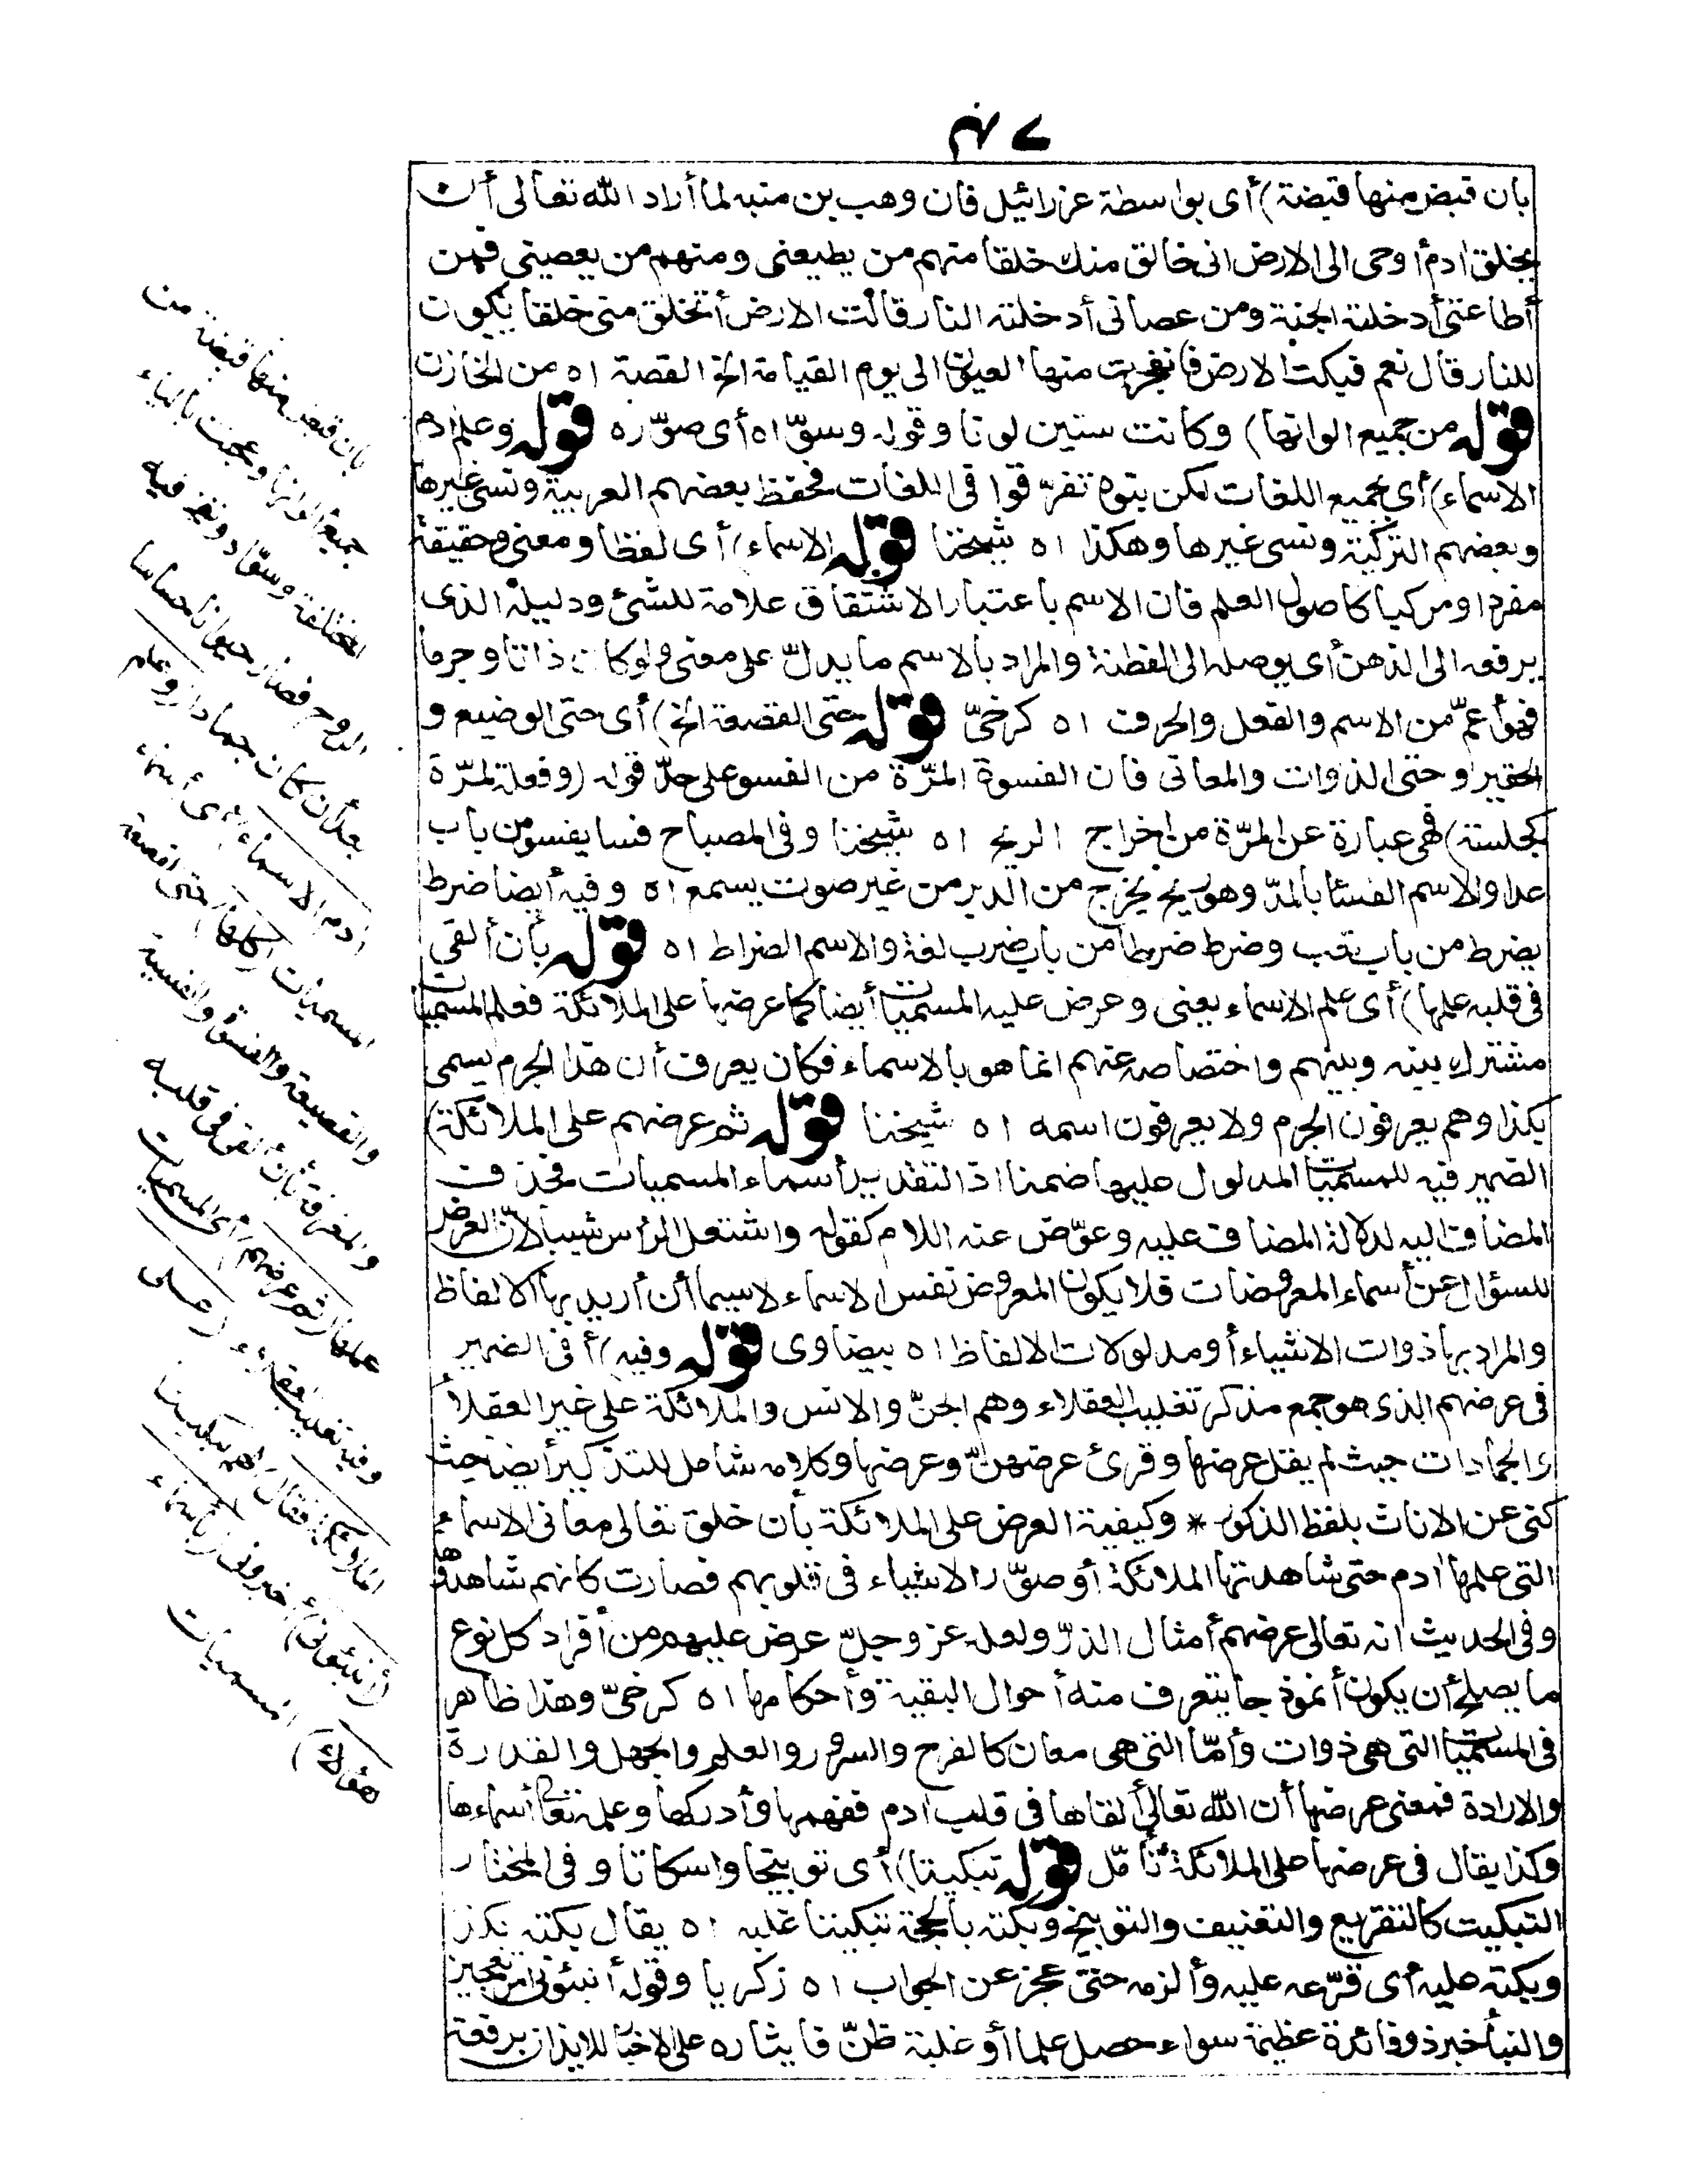 ٤٧
بان قبض منها قبضة) أى بواسطة عزرائيل قان وهب بن منبه لما أراد الله تعالى أن
يخلق ادم أوحى الى الارض انى خالق منك خلقا منهم من يطيعنى ومنهم من يعصينى فمن
أطاعنى أدخلته الجنة ومن عصانى أدخلته النار قالت الارض أتخلق منى خلقا يكون
للنار قال نعم فبكت الارض فانفجرت منها العيون الى يوم القيامة الخ القصة اه من الخازن
قوله من جميع الوانها) وكانت ستين لونا وقوله وسوّاه أى صوّره قوله وعلم ادم
الاسماء) أى بجميع اللغات لكن بنوه تفرّقوا فى اللغات فحفظ بعضهم العربية ونسى غيرها
وبعضهم التركية ونسى غيرها وهكذا اه شيخنا قوله الاسماء) أى لفظا ومعنى وحقيقة
مفردا ومركبا كاصول العلم فان الاسم باعتبار الاشتقاق علامة للشئ ودليله الذى
يرفعه الى الذهن أى يوصله الى الفطنة والمراد بالاسم ما يدلّ على معنى ولوكان ذاتا وجرما
فهو أعمّ من الاسم والفعل والحرف اه كرخىّ قوله حتى القصعة الخ) أى حتى الوضيع و
الحقير او حتى الذوات والمعانى فان الفسوة المرّة من الفسو على حدّ قوله (وفعلة لمرّة
كجلسة) فهى عبارة عن المرّة من اخراج الريح اه شيخنا وفى المصباح فسا يفسو من باب
عدا والاسم الفساء بالمدّ وهو ريح يخرج من الدبر من غير صوت يسمع اه وفيه أيضا ضرط
يضرط من باب تعب وضرط ضرطا من باب ضرب لغة والاسم الضراط اه قوله بأن ألقى
فى قلبه علمها) أى علم الاسماء يعنى وعرض عليه المسميات أيضا كما عرضها على الملائكة فعلم المسميات
مشترك بينه وبينهم واختصاصه عنهم انما هو بالاسماء فكان يعرف أن هذا الجرم يسمى
بكذا وهم يعرفون الجرم ولا يعرفون اسمه اه شيخنا قوله ثم عرضهم على الملائكة)
الضمير فيه للمسميات المدلول عليها ضمنا اذ التقدير أسماء المسميات فحذف
المضاف اليه لدلالة المضاف عليه وعوّض عنه اللام كقوله واشتعل الرأس شيبا لانّ العرض
للسؤال عن أسماء المعروضات فلا يكون المعروض نفس الاسماء لاسيما أن أريد بها الالفاظ
والمراد بها ذوات الاشياء أو مدلولات الالفاظ اه بيضاوى قوله وفيه) أ فى الضمير
فى عرضهم الذى هو جمع مذكر تغليب العقلاء وهم الجنّ والانس والملائكة على غير العقلا
والجمادات حيث لم يقل عرضها وقرئ عرضهنّ وعرضها وكلامه شامل للتذكير أيضا حيث
كنى عن الاناث بلفظ الذكور * وكيفية العرض على الملائكة بأن خلق تعالى معانى الاسماء
التى علمها ادم حتى شاهدتها الملائكة أو صوّر الاشياء فى قلوبهم فصارت كانهم شاهدوها
وفى الحديث انه تعالى عرضهم أمثال الذرّ ولعله عز وجلّ عرض عليهم من أفراد كل نوع
ما يصلح أن يكون أنموذجا يتعرف منه أحوال البقية وأحكامها اه كرخىّ وهذا ظاهر
فى المسميات التى هى ذوات وأمّا التى هى معان كالفرح والسرور والعلم والجهل والقدرة
والارادة فمعنى عرضها أن الله تعالى ألقاها فى قلب ادم ففهمها وأدركها وعلمه تعالى أسماءها
وكذا يقال فى عرضها على الملائكة تأمّل قوله تبكيتا) أى توبيخا واسكاتا وفى المختار
التبكيت كالتقريع والتعنيف والتوبيخ وبكته بالحجة تبكيتا غلبه اه يقال بكته بكذا
وبكته عليه أى قرّعه عليه وألزمه حتى عجز عن الجواب اه زكريا وقوله أنبئونى امر تعجيز
والنبأ خبر ذو فائدة عظيمة سواء حصل علما أو غلبة ظنّ فايثاره على الاخبار للايذان برفعة
بان قبض منها قبضة من
جميع الوانها وعجنت بالمياه
المختلفة وسوّاه ونفخ فيه
الروح فصار حيوانا حساسا
بعد أن كان جمادا (وعلم
ادم الاسماء) أى أسماء
المسميات (كلها) حتى القصعة
والقصيعة والفسوة والفسية
والمغرفة بأن ألقى فى قلبه
علمها (ثم عرضهم) أى المسميات
وفيه تغليب العقلاء (على
الملائكة فقال) لهم تبكيتا
(أنبئونى) أخبرونى (بأسماء
هؤلاء) المسميات